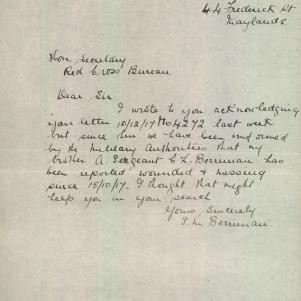 44 Frederick St
Maylands
Hon. Secretary
Red Cross Bureau
Dear Sir
I wrote to you acknowledging
your letter 10/12/17 No 4272 last week
but since then we have been informed
by the Military Authorities that my
brother A. Sergeant C. L. Berriman has
been reported wounded & missing
since 15/10/17. I thought that might
help you in your search
Yours Sincerely
Berriman